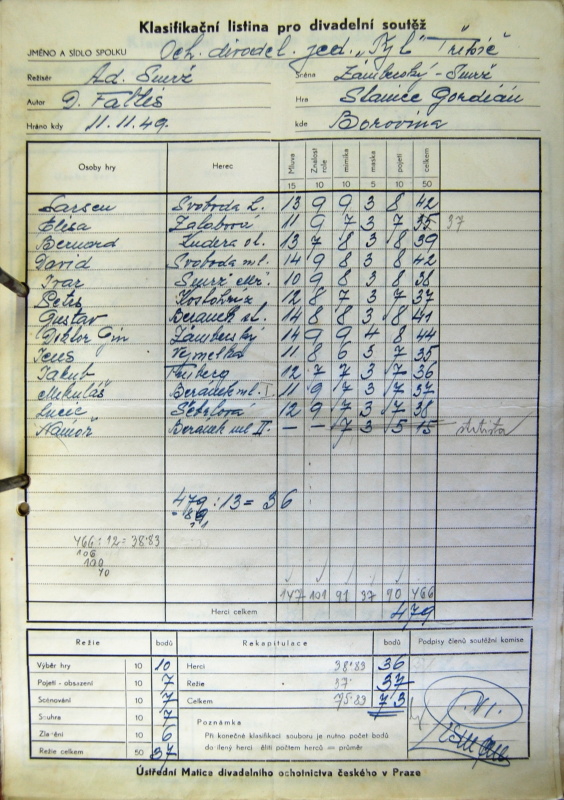 Klasifikační listina pro divadelní soutěž
JMÉNO A SÍDLO SPOLKU Och. divadel. jed. „Tyl" Třebíč
Režisér Ad. Smrž Scéna Zámberský - Smrž
Autor D. Faltis Hra Stanice Gordian
Hráno kdy 11.11.49. kde Borovina
Osoby hry Herec Mluva Znalost role mimika maska pojetí celkem
15 10 10 5 10 50
Larsen Svoboda L. 13 9 9 3 8 42
Elisa 11 9 7 3 7 35 37
Bernard Kudera st. 13 7 8 3 8 39
David Svoboda ml. 14 9 8 3 8 42
Ivar Smrž 10 9 8 3 8 38
Petrs 12 8 7 3 7 37
Gustav Beránek st. 14 8 8 3 8 41
Doktor Gin Zámberský 14 9 9 4 8 44
Vejmelka 11 8 6 3 7 35
Jakub 12 7 7 3 7 36
Mikuláš Beránek ml. I. 11 9 7 3 7 37
Lucie 12 9 7 3 7 38
Námoř. Beránek ml II. — — 7 3 5 15
479 : 13 = 36
466 : 12 = 38·83
106
100
40
147 101 91 37 90 466
Herci celkem 479
Režie bodů Rekapitulace bodů Podpisy členů soutěžní komise
Výběr hry 10 10 Herci 38·83 36
Pojetí - obsazení 10 7 Režie 37· 37
Scénování 10 7 Celkem 75·83 73
Souhra 10 7
Poznámka
Zlepšení 10 6 Při konečné klasifikaci souboru je nutno počet bodů
Režie celkem 50 37 docílený herci děliti počtem herců = průměr
Ústřední Matice divadelního ochotnictva českého v Praze